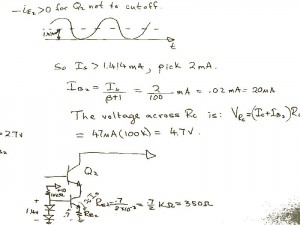 -i_E2 > 0 for Q2 not to cutoff.
t
So Is > 1.414 mA, pick 2 mA.
I_B2 = Is/(β+1) = 2/100 mA = .02mA = 20μA
The voltage across Rc is: V_Rc = (Ic+I_B2)Rc
= 47μA(100K) = 4.7V.
= 2.7V
Q2
R_E2 = .7/(2×10^-3) = .7/2 KΩ = 350Ω
+
+
.7
-
R_E2